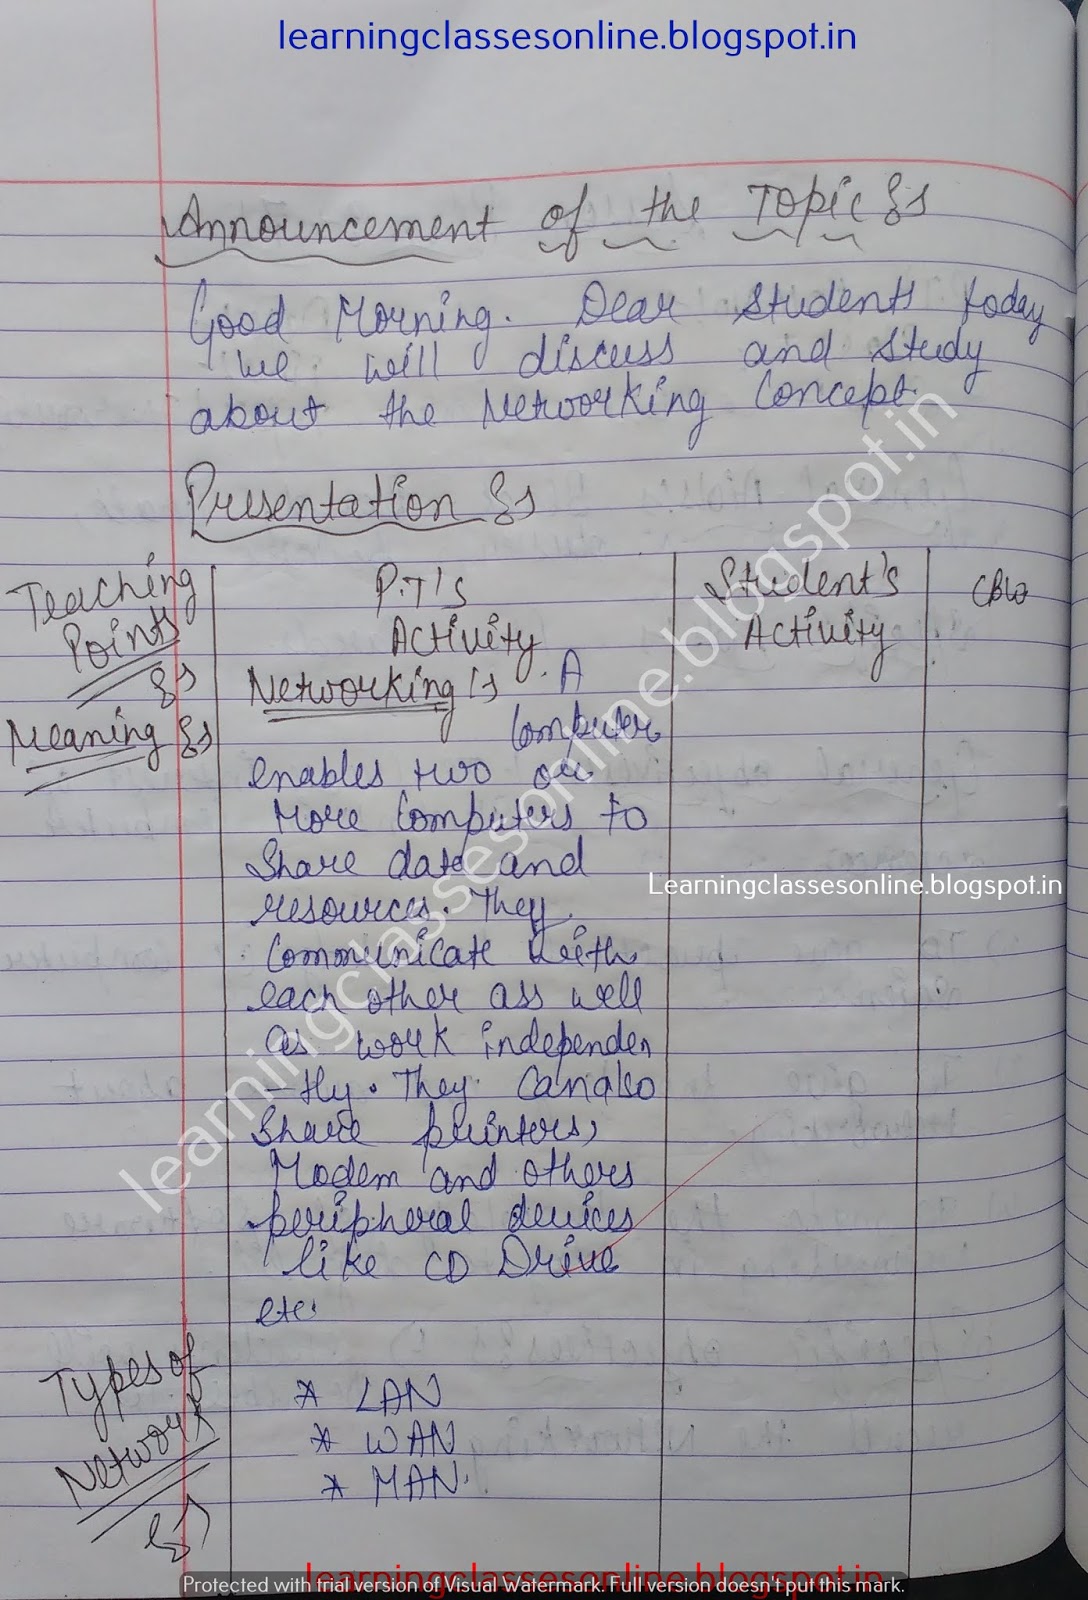 learningclassesonline.blogspot.in
Announcement of the Topic :-
Good Morning. Dear Students today
we will discuss and study
about the Networking Concept.
Presentation :-
Teaching Points :-
P.T's Activity
Student's Activity
CBW
Meaning :-
Networking :- A
Computer
enables two or
More Computers to
Share data and
resources. They
Communicate with
each other ass well
as work independen
-tly. They can also
Share printers,
Modem and others
peripheral devices
like CD Drive
etc.
Types of Network :-
* LAN
* WAN
* MAN.
learningclassesonline.blogspot.in
Learningclassesonline.blogspot.in
learningclassesonline.blogspot.in
Protected with trial version of Visual Watermark. Full version doesn't put this mark.